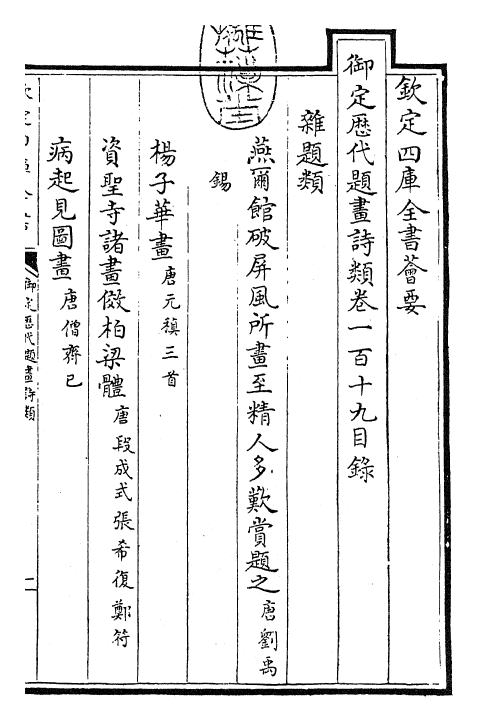 欽定四庫全書薈要
御定歷代題畫詩類卷一百十九目錄
雜題類
燕爾館破屏風所畫至精人多歎賞題之 唐劉禹
錫
楊子華畫 唐元稹三首
資聖寺諸畫倣柏梁體 唐段成式張希復鄭符
病起見圖畫 唐僧齊已
御定歷代題畫詩類